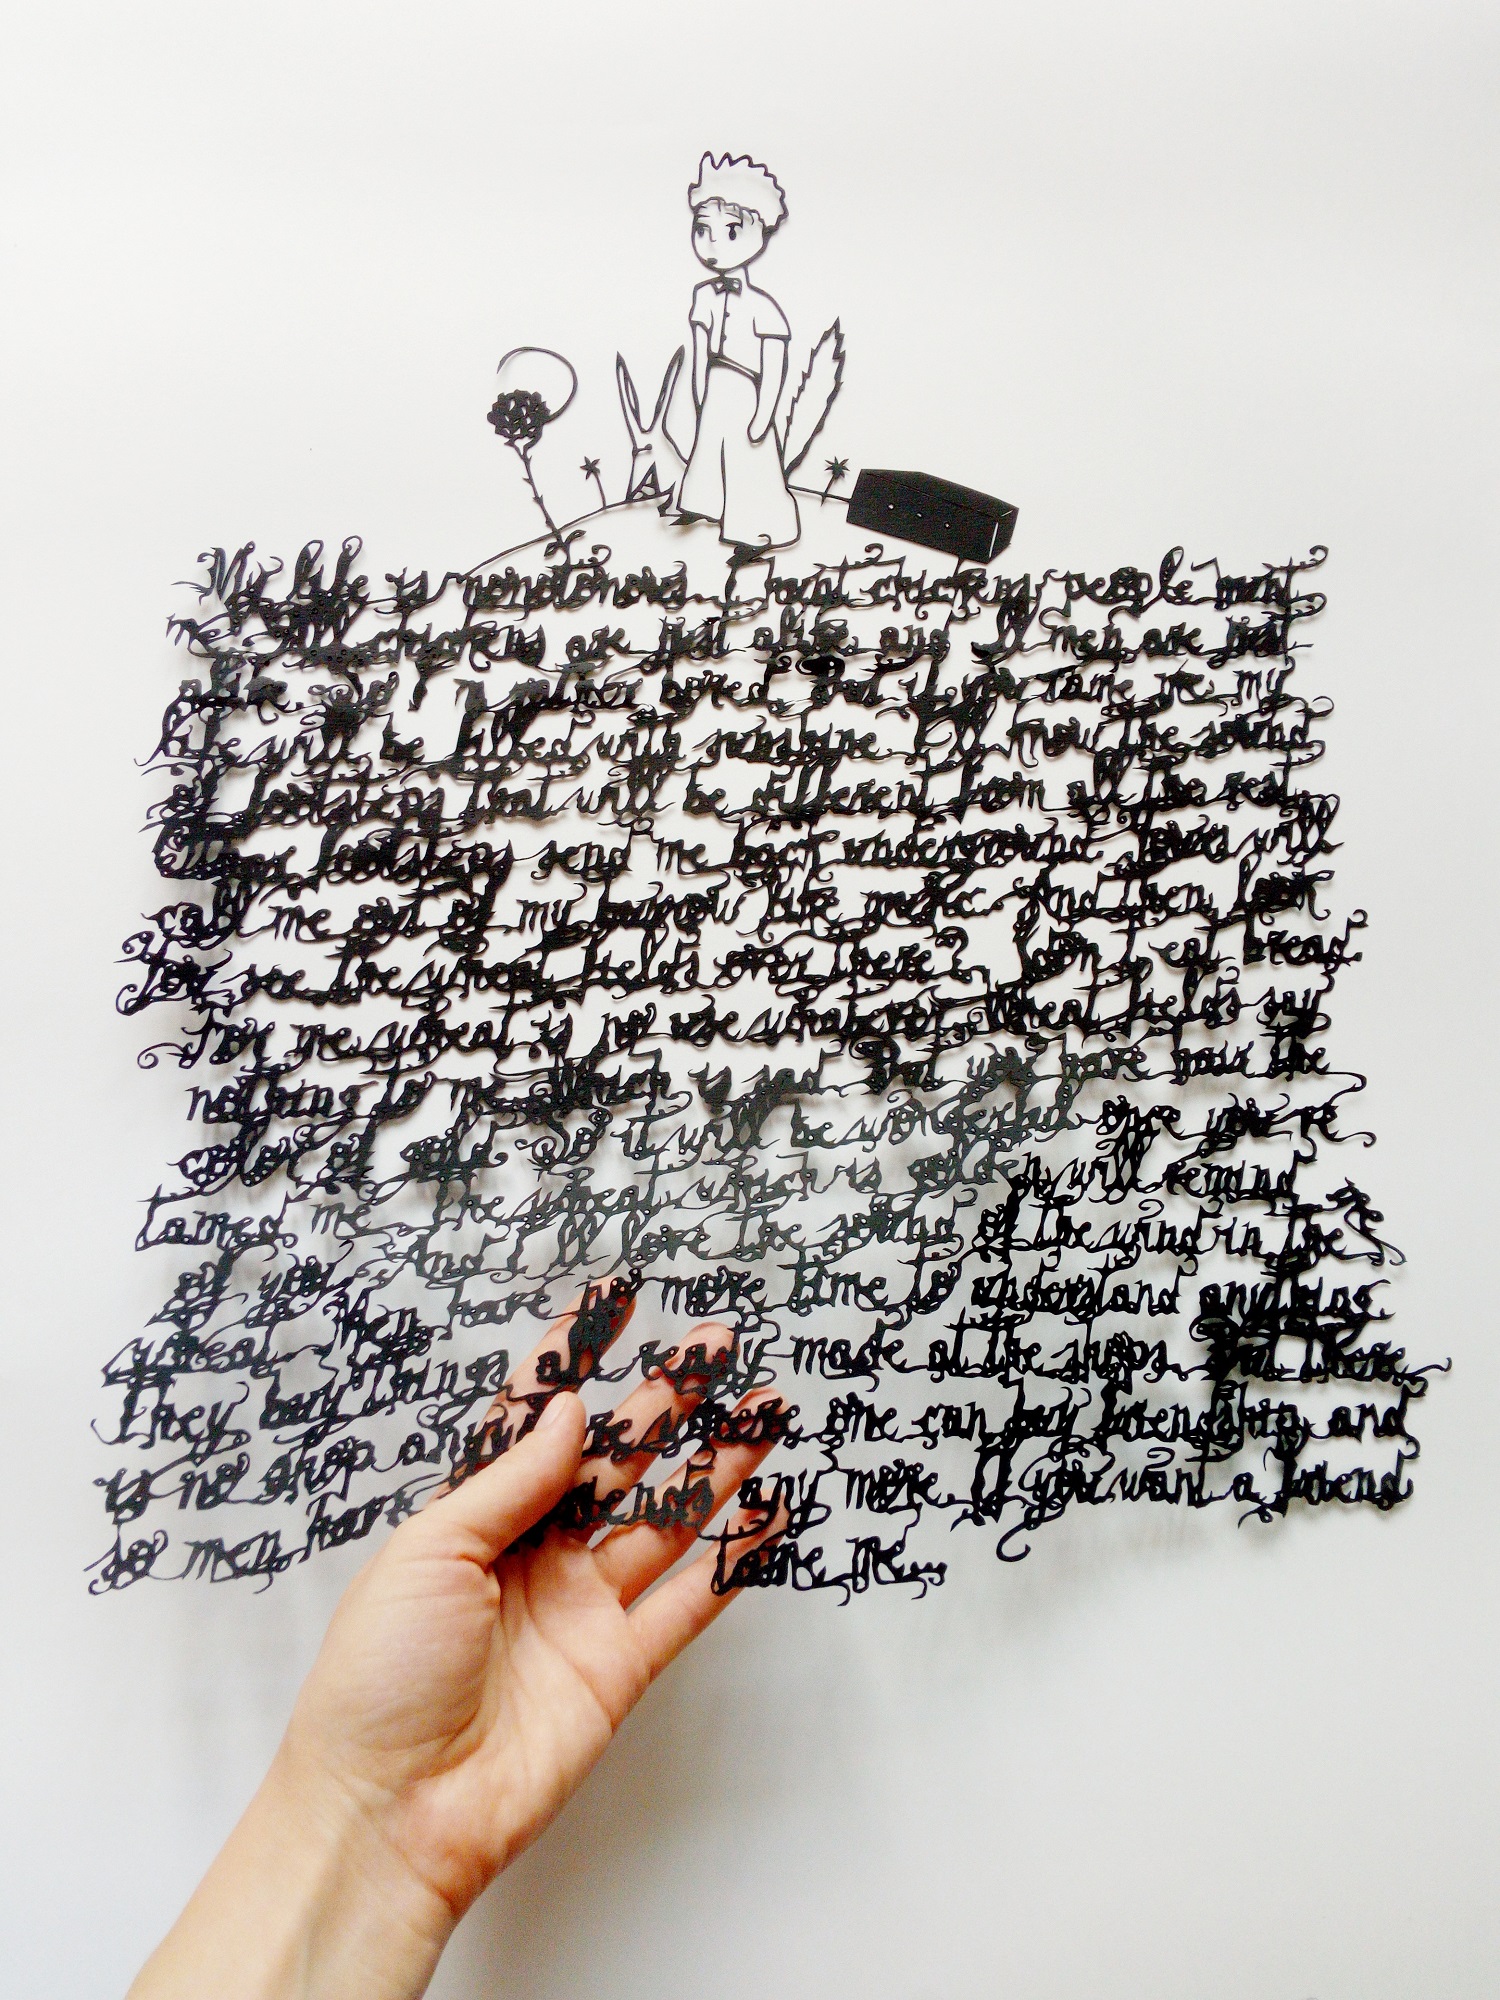 My life is monotonous. I hunt chickens people hunt
me. All chickens are just alike, and all men are just
alike. So I'm rather bored. But if you tame me, my
life will be filled with sunshine. I'll know the sound
of footsteps that will be different from all the rest.
Other footsteps send me back underground. Yours will
call me out of my burrow like music. And then, look
You see the wheat fields over there? I don't eat bread.
For me wheat is no use whatever. Wheat fields say
nothing to me. Which is sad. But you have hair the
color of gold. So it will be wonderful, once you're
tamed me. The wheat, which is golden, will remind
of you. And I'll love the sound of the wind in the
wheat. Men have no more time to understand anything.
They buy things all ready made at the shops. But there
is no shop anywhere where one can buy friendship and
so men have friends any more. If you want a friend
tame me...